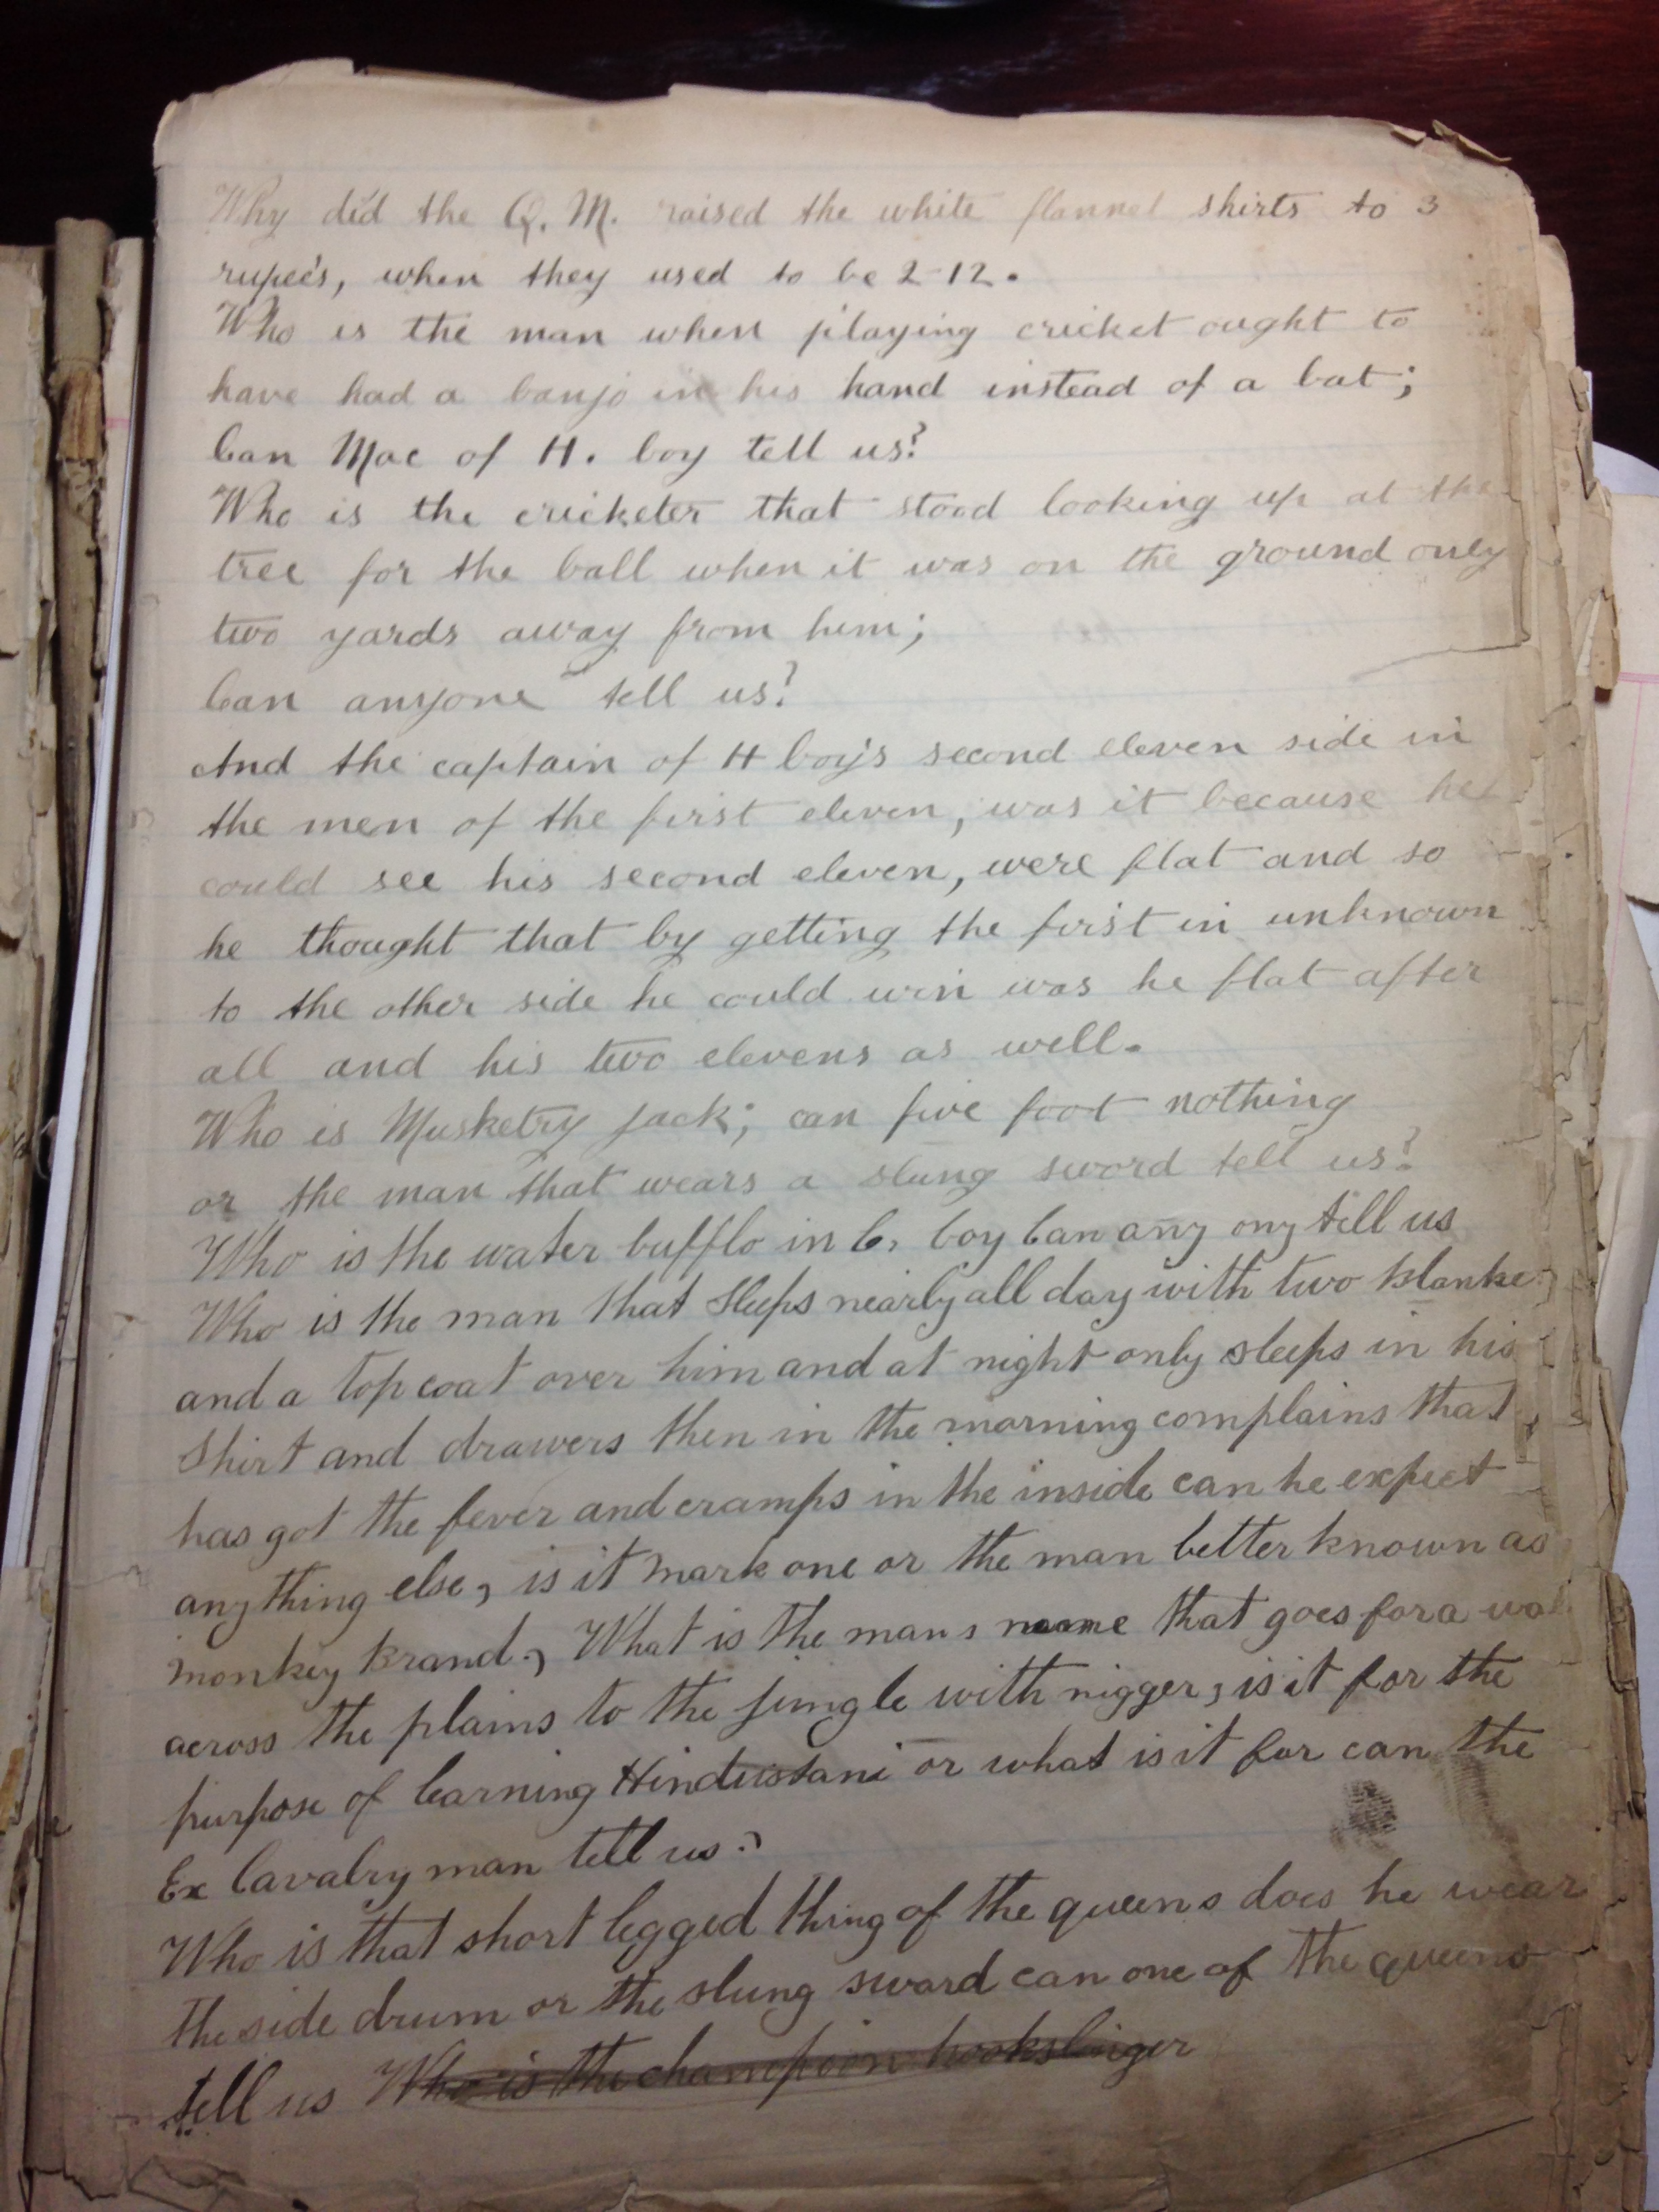 Why did the Q. M. raised the white flannel shirts to 3
rupee's, when they used to be 2-12.
Who is the man when playing cricket ought to
have had a banjo in his hand instead of a bat;
Can Mac of H. Coy tell us?
Who is the cricketer that stood looking up at the
tree for the ball when it was on the ground only
two yards away from him;
Can anyone tell us?
And the captain of H Coy's second eleven side in
the men of the first eleven, was it because he
could see his second eleven, were flat and so
he thought that by getting the first in unknown
to the other side he could win was he flat after
all and his two elevens as well.
Who is Musketry Jack; can five foot nothing
or the man that wears a slung sword tell us?
Who is the water bufflo in C, Coy Can any ony tell us
Who is the man that Sleeps nearly all day with two Blanke
and a top coat over him and at night only sleeps in his
Shirt and drawers then in the morning complains that
has got the fever and cramps in the inside can he expect
anything else, is it Mark one or the man better known as
Monkey Brand., What is the mans name that goes for a wal
across the plains to the jungle with nigger, is it for the
purpose of learning Hindustani or what is it for can the
Ex Cavalry man tell us.?
Who is that short legged thing of the queens does he wear
the side drum or the slung sword can one of the queens
tell us Who is the champion hookslinger